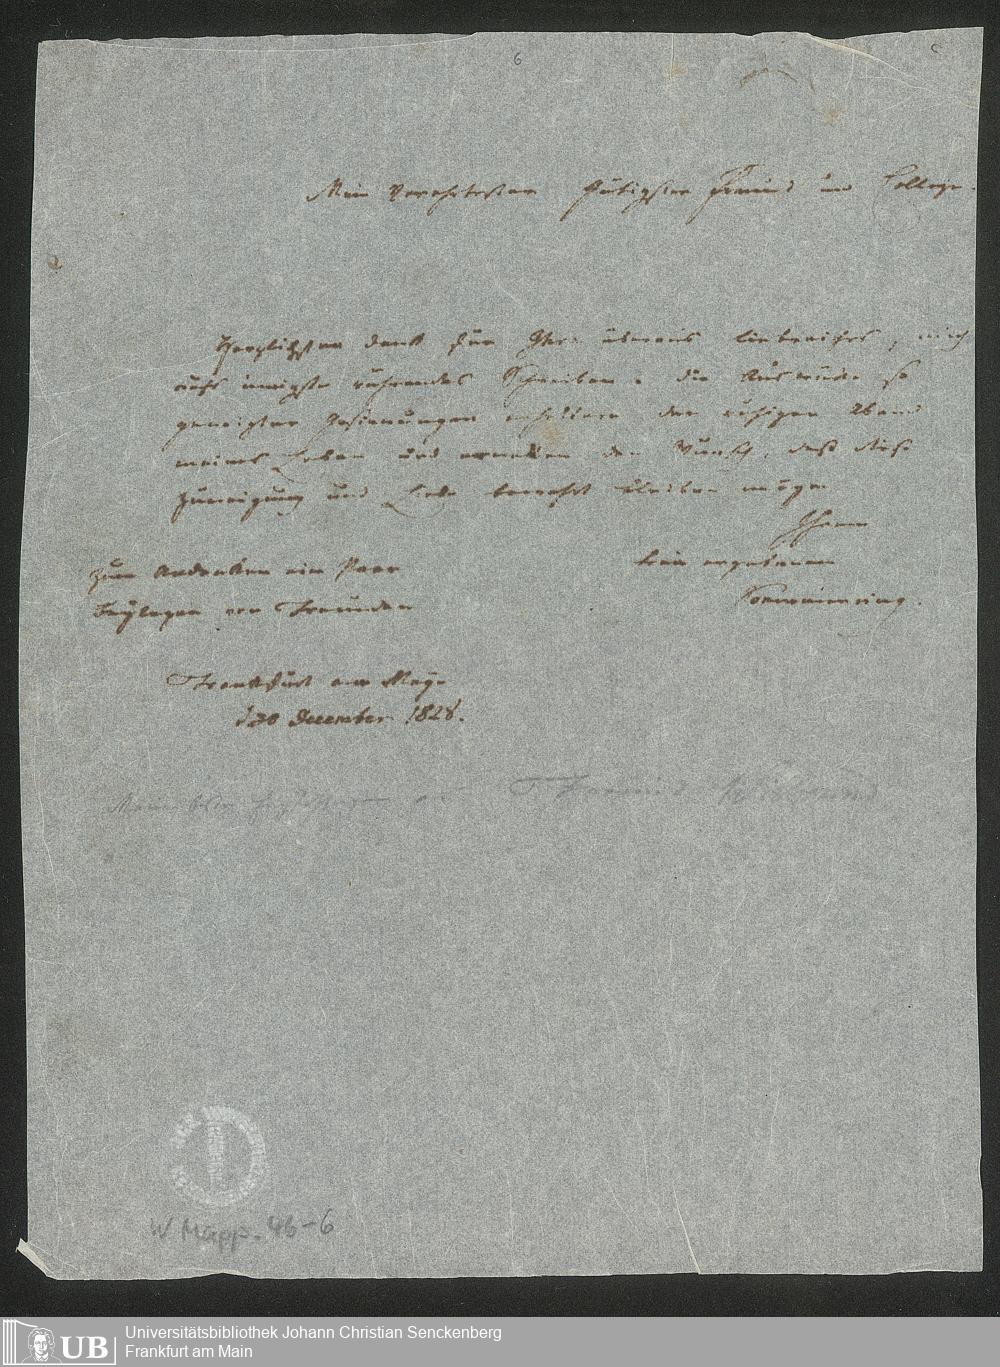 6
Mein Verehrtester gütigster Freund und College.
Herzlichsten Dank für Ihr überaus liebreiches, mich
aufs innigste rührendes Schreiben. Die Ausdrücke so
geneigter Gesinnungen erheitern den ruhigen Abend
meines Lebens und erwecken den Wunsch, daß diese
Zuneigung und Liebe bewahrt bleiben möge
Ihrem
treu ergebenen
Soemmerring.
Zum Andenken ein Paar
Beylagen von Freunden
Frankfurt am Mayn
d 30 December 1828.
Freund Wiebrund
W. Mapp. 46-6
UB
Universitätsbibliothek Johann Christian Senckenberg
Frankfurt am Main